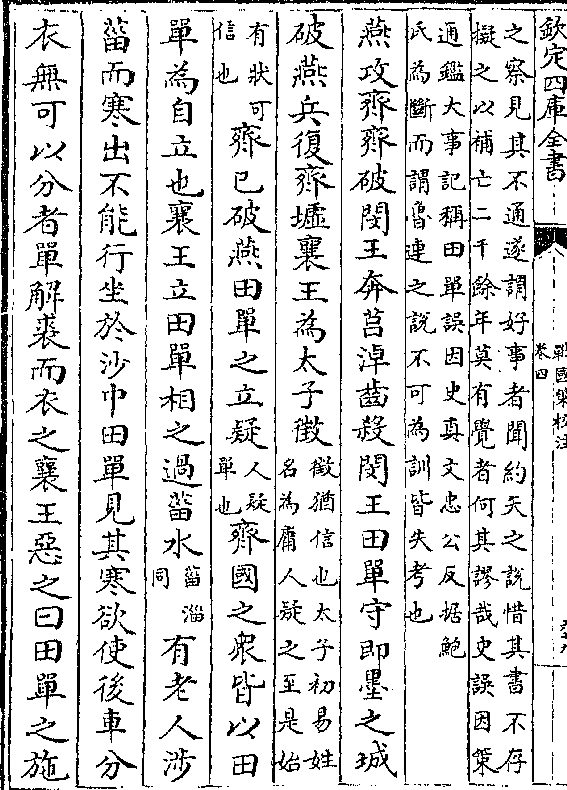 欽定四庫全書
戰國策校注
卷四
之察見其不通遂謂好事者聞約矢之說惜其書不存
擬之以補亡二千餘年莫有覺者何其謬哉史誤因策
通鑑大事記稱田單誤因史真文忠公反据鮑
氏為斷而謂魯連之說不可為訓皆失考也
燕攻齊齊破閔王奔莒淖齒殺閔王田單守即墨之城
破燕兵復齊墟襄王為太子徵徵猶信也太子初易姓
名為庸人疑之至是始
有狀可
信也齊已破燕田單之立疑人疑
單也齊國之衆皆以田
單為自立也襄王立田單相之過菑水菑淄
同有老人涉
菑而寒出不能行坐於沙中田單見其寒欲使後車分
衣無可以分者單解裘而衣之襄王惡之曰田單之施